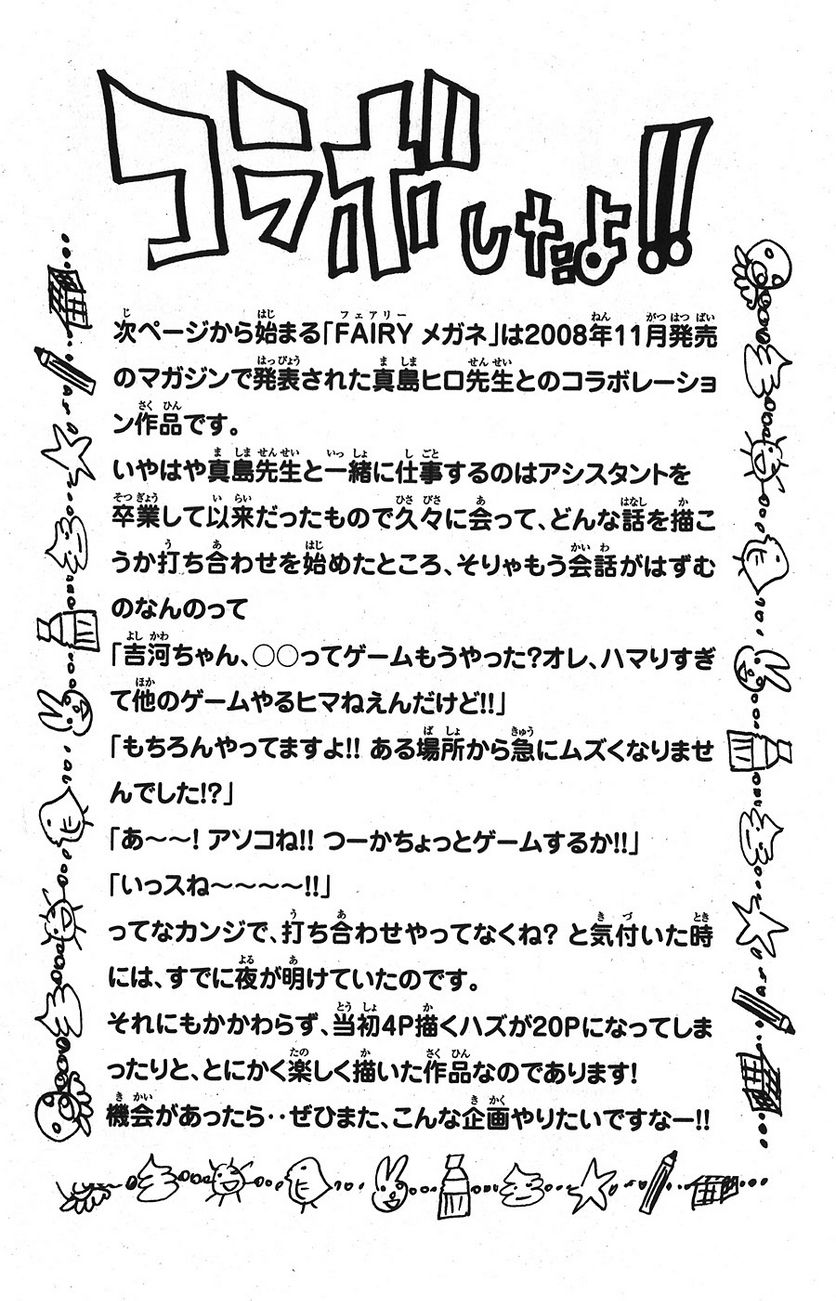 コラボしたよ!!
次ページから始まる「FAIRY メガネ」は2008年11月発売
のマガジンで発表された真島ヒロ先生とのコラボレーショ
ン作品です。
いやはや真島先生と一緒に仕事するのはアシスタントを
卒業して以来だったもので久々に会って、どんな話を描こ
うか打ち合わせを始めたところ、そりゃもう会話がはずむ
のなんのって
「吉河ちゃん、○○ってゲームもうやった?オレ、ハマりすぎ
て他のゲームやるヒマねえんだけど!!」
「もちろんやってますよ!! ある場所から急にムズくなりませ
んでした!?」
「あ〜〜! アソコね!! つーかちょっとゲームするか!!」
「いっスね〜〜〜〜!!」
ってなカンジで、打ち合わせやってなくね? と気付いた時
には、すでに夜が明けていたのです。
それにもかかわらず、当初4P描くハズが20Pになってしま
ったりと、とにかく楽しく描いた作品なのであります!
機会があったら‥ぜひまた、こんな企画やりたいですなー!!